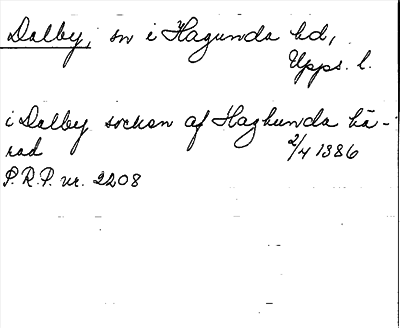 Dalby, sn i Hagunda hd,
Upps. l.
i Dalby sockan af Haghunda hä-
rad 2/4 1386
P.R.P. nr. 2208